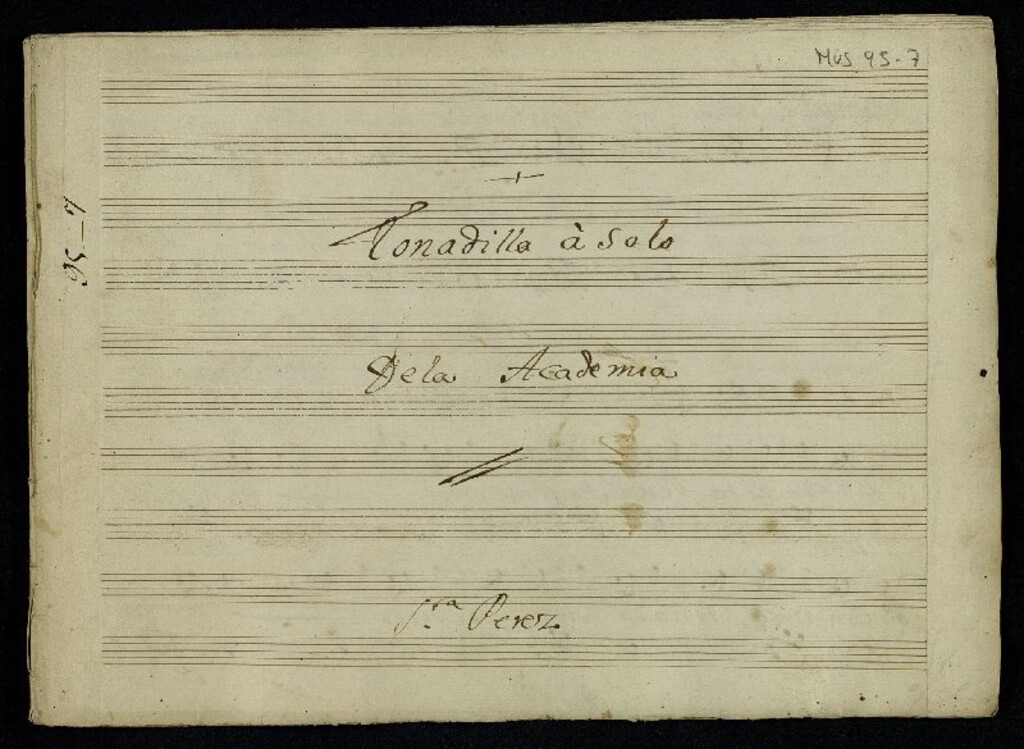 Mus 95-7
95-7
Tonadilla à Solo
Dela Academia
S.ra Perez